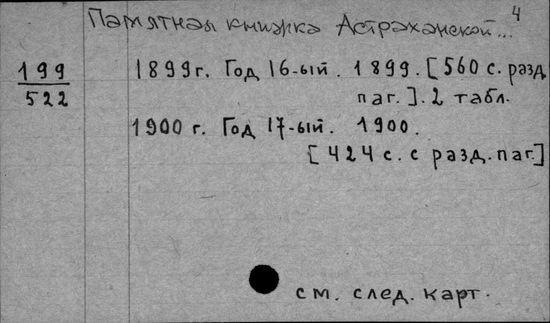 4
Памятная книжка Астраханской...
199
522
1899г. Год 16-ый. 1899. [560 с. разд.
паг.]. 2 табл.
1900 г. Год 17-ый. 1900.
[424 с. с разд. паг.]
см. след. карт.